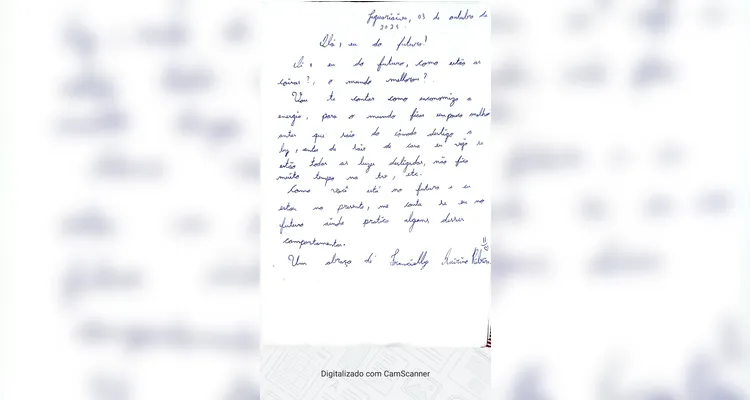 Jaguariaíva, 03 de outubro de
2021
Olá, eu do futuro!
Oi, eu do futuro, como estão as
coisas?, o mundo melhorou?
Vou te contar como economizo a
energia, para o mundo ficar um pouco melho
antes que saio do cômodo desligo a
luz, antes de sair de casa eu vejo se
estão todas as luzes desligadas, não fico
muito tempo na tv, etc.
Como você está no futuro e eu
estou no presente, me conta se eu no
futuro ainda pratico algum desses
comportamentos.
Um abraço de Francielly Ribeiro
Digitalizado com CamScanner